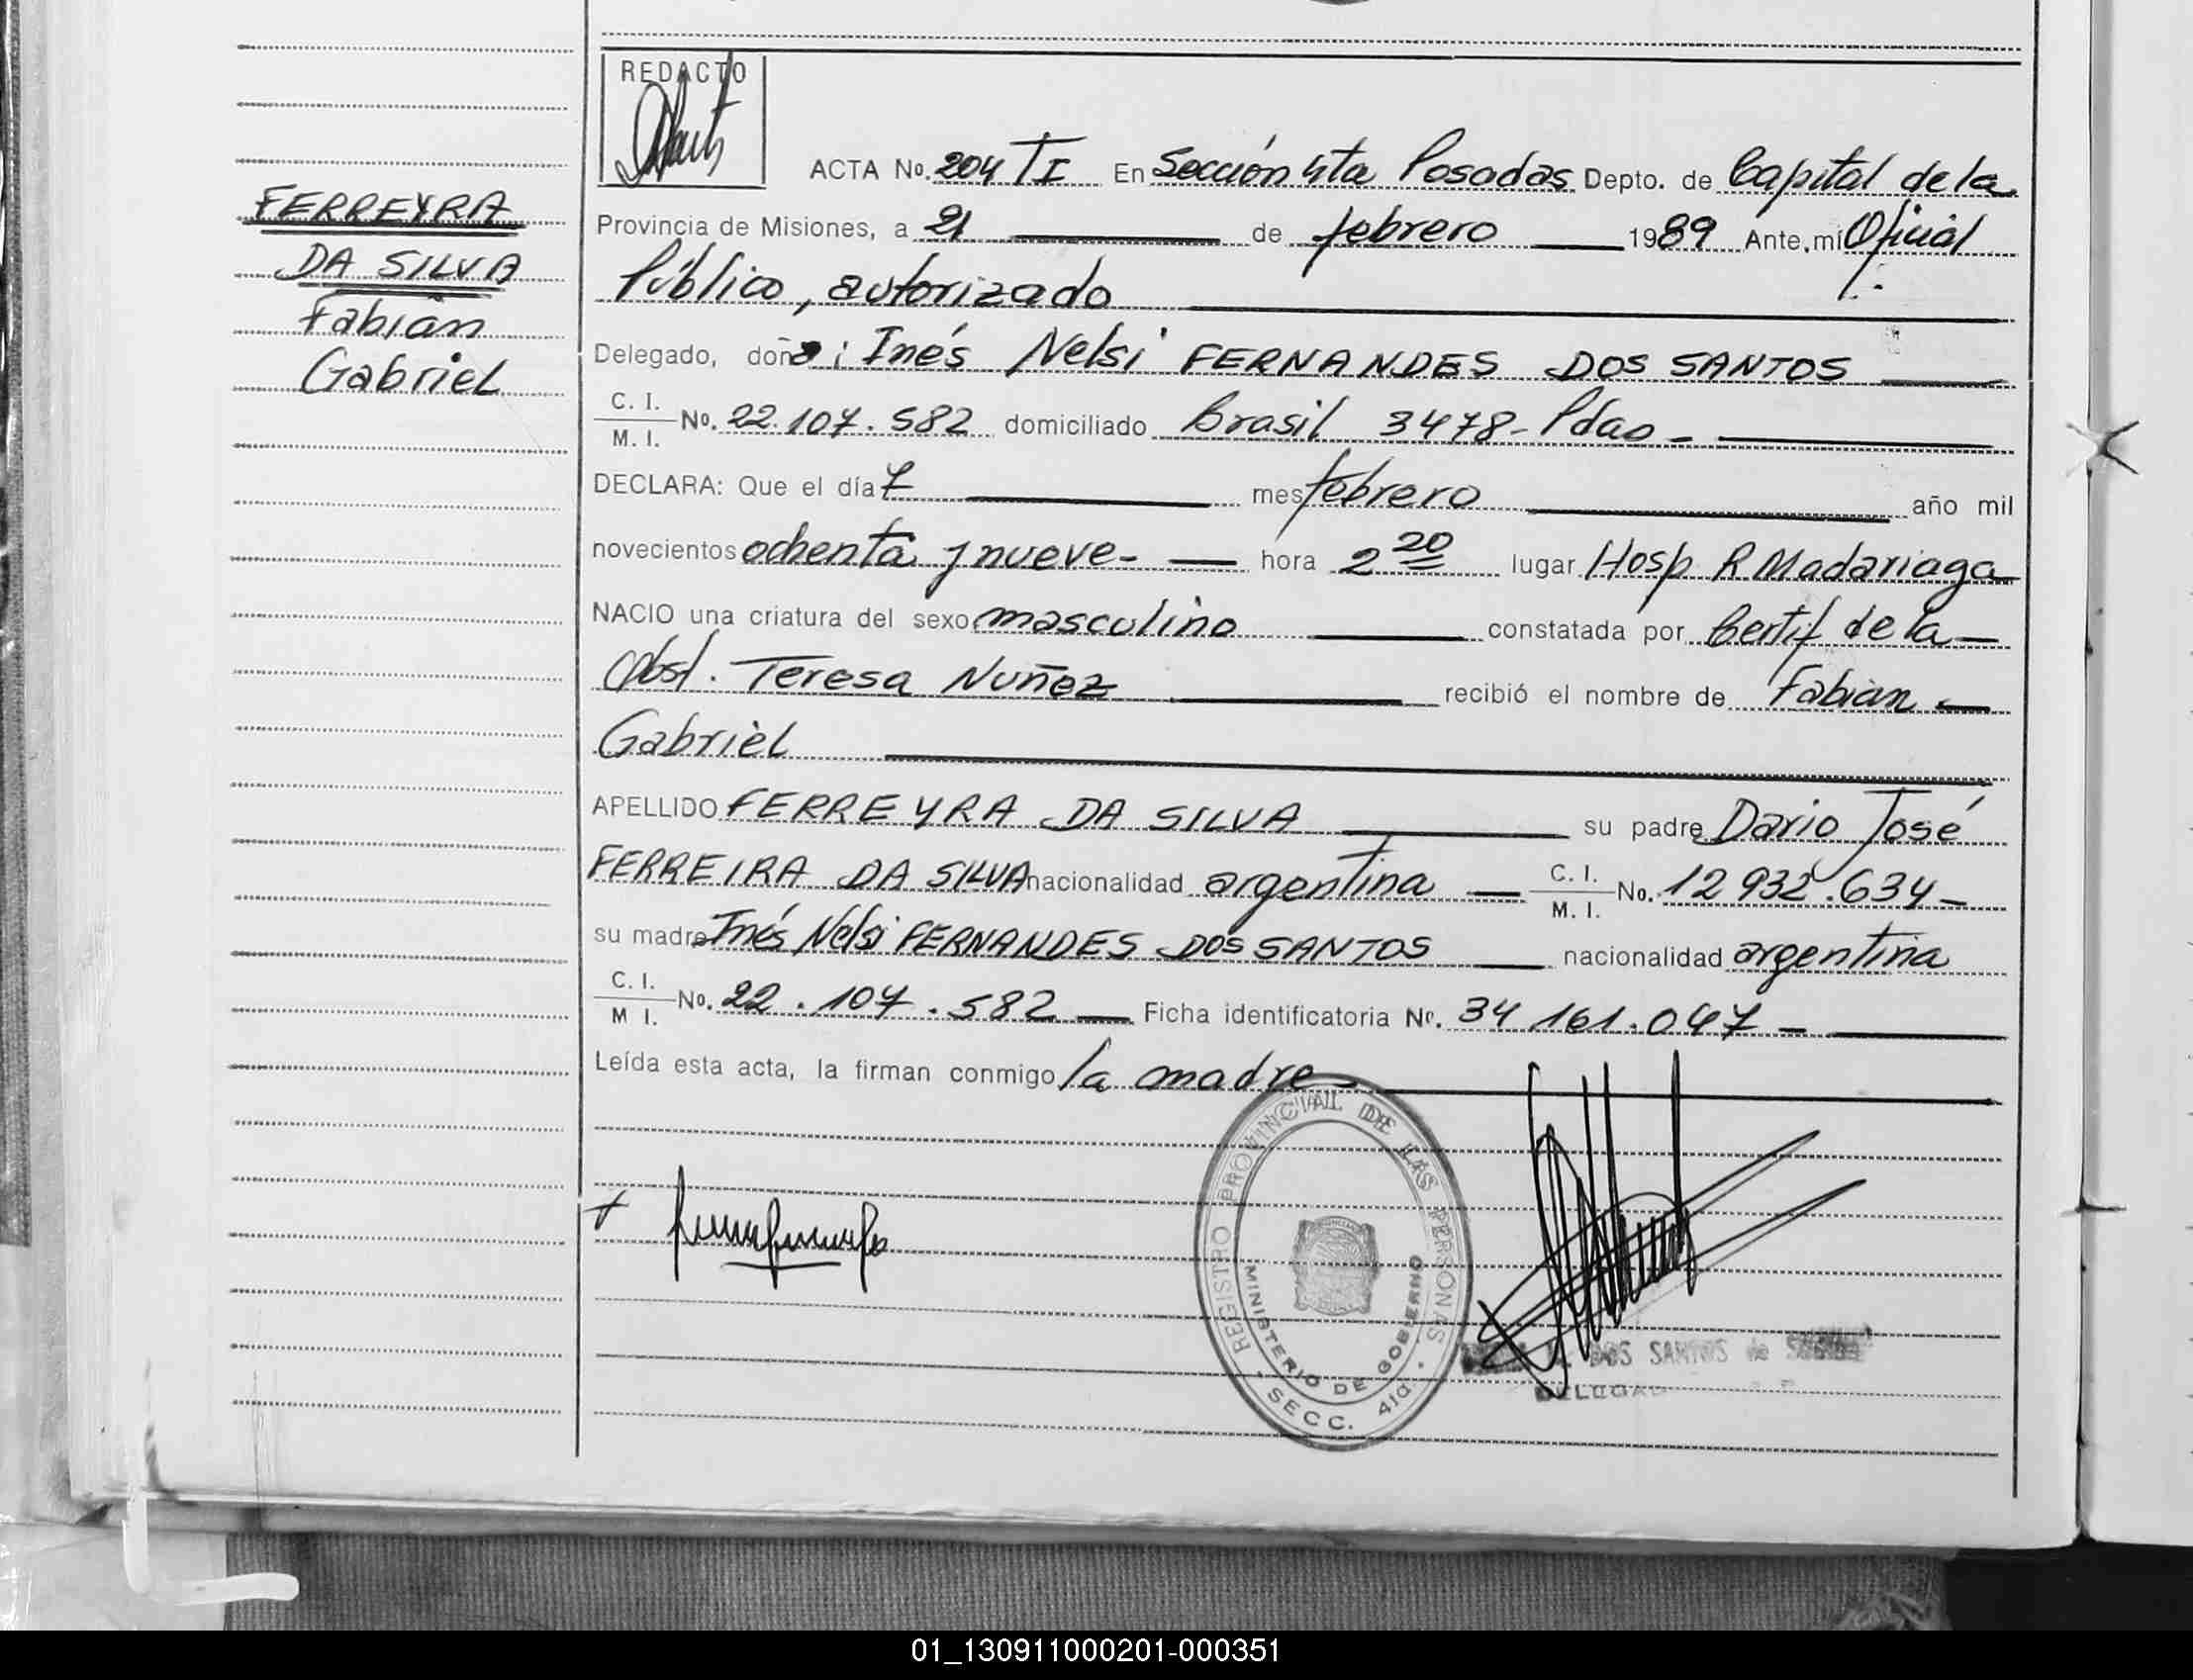 REDACTO
ACTA No. 204 TI En Sección 4ta Posadas Depto. de Capital de la
Provincia de Misiones, a 21 de febrero 1989 Ante mi Oficial
Público, autorizado
Delegado, doña: Inés Nelsi FERNANDES DOS SANTOS
C. I.
M. I.
No. 22.107.582 domiciliado Brasil 3478- Pdas-
DECLARA: Que el día 7 mes febrero año mil
novecientos ochenta y nueve- hora 2 20 lugar Hosp R Madariaga
NACIO una criatura del sexo masculino constatada por Certif de la
Obst. Teresa Nuñez recibió el nombre de Fabián
Gabriel
APELLIDO FERREYRA DA SILVA su padre Dario José
FERREIRA DA SILVA nacionalidad argentina C. I. M. I. No. 12 932.634-
su madre Inés Nelsi FERNANDES DOS SANTOS nacionalidad argentina
C. I.
M I.
No. 22.107.582 Ficha identificatoria Nº. 34 161.047-
Leída esta acta, la firman conmigo la madre-
FERREYRA
DA SILVA
Fabián
Gabriel
REGISTRO PROVINCIAL DE LAS PERSONAS
MINISTERIO DE GOBIERNO
SECC. 4ta.
DOS SANTOS de
01_130911000201-000351